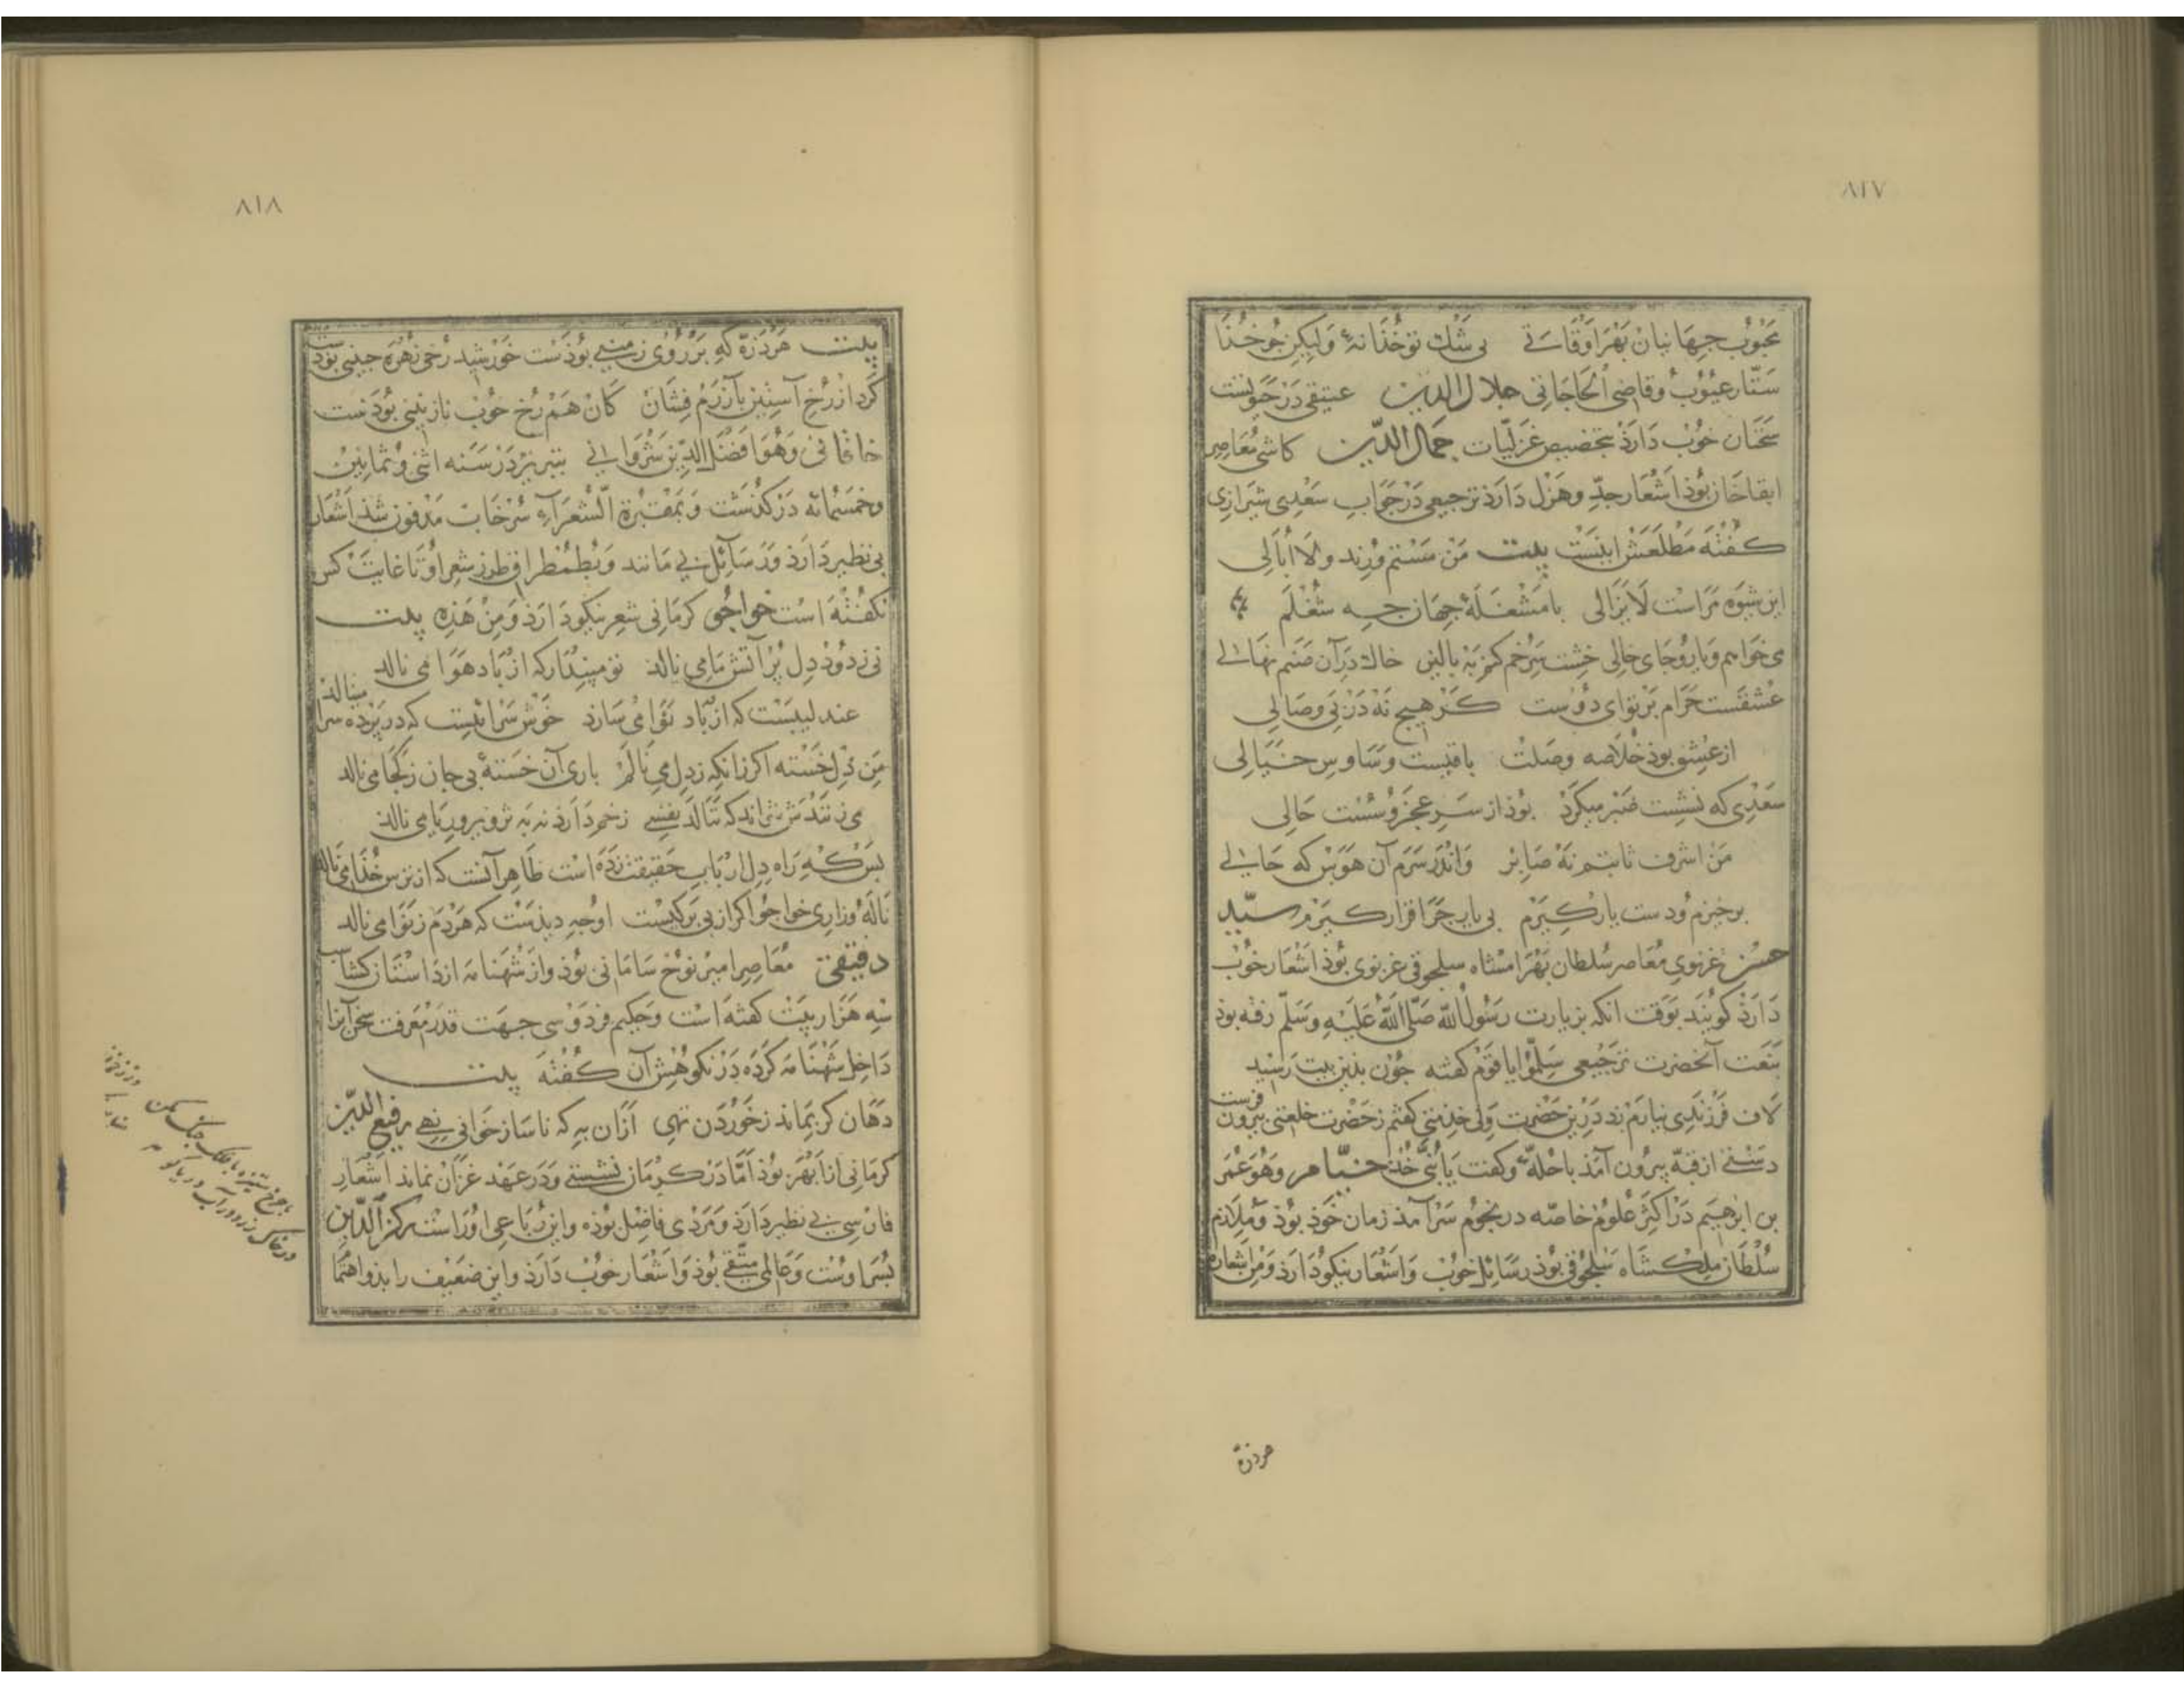 ۸۱۷
محبوب جهانیان بهر اوقاتی بی شک تو خذا نهٔ ولیکن جو خذا
ستار عیوب و قاضی الحاجاتی جلال الدین عتیقی در حیوتست
سخنان خوب دارذ بتخصیص غزلیات جمال الدین کاشی معاصر
ابقاخان بوذ اشعار جدّ و هزل دارذ ترجیعی در جواب سعدی شیرازی
کفته مطلعش اینست بیت من مستم و رند و لا ابالی
این شیوه مراست لا یزالی با مشغلهٔ جهان جه شغلم
می خواهم و یار و جای خالی خشت سر خم کنم به بالین خاک در آن صنم نهالی
عشقست حرام بر تو ای دوست کر هیج نه در پی وصالی
از عشق بوذ خلاصه وصلت باقیست وساوس خیالی
سعدی که نشست صبر میکرد بوذ از سر عجز و سست حالی
من اشرف ثابتم نه صابر و اندر سرم آن هوس که حالی
برخیزم و دست یار کیرم بی یار جرا قرار کیرم سیّد
حسن غزنوی معاصر سلطان بهرامشاه سلجوقی غزنوی بوذ اشعار خوب
دارذ کویند بوقت انکه بزیارت رسول الله صلی الله علیه وسلم رفته بوذ
بنعت آنحضرت ترجیعی سلّموا یا قوم کفته جون بذین بیت رسید
لاف فرزندی نیارم زد درین حضرت ولی خدمتی کفتم ز حضرت خلعتی بیرون فرست
دستی از قبه بیرون آمذ با حلّهٔ و کفت یا بنیّ خذ خیّام وهو عمر
بن ابرهیم در اکثر علوم خاصّه در نجوم سرآمذ زمان خوذ بوذ و ملازم
سلطان ملکشاه سلجوقی بوذ رسائل خوب و اشعار نیکو دارذ و من اشعاره
هر ذره
۸۱۸
بیت هر ذرّه که بر روی زمینی بوذست خورشید رخی زهره جبینی بوذست
کرد از رخ آستین بآزرم فشان کان هم رخ خوب نازنینی بوذست
خاقانی وهو افضل الدین شروانی بتبریز در سنه اثنی و ثمانین
وخمسمائه درکذشت و بمقبرة الشعراء سرخاب مدفون شذ اشعار
بی نظیر دارذ و رسائل بی مانند و بطمطراق طرز شعر او تا غایت کس
نکفته است خواجوی کرمانی شعر نیکو دارذ و من هذه بیت
نی ز دود دل پر آتش ما می نالد تو مپندار که از باد هوا می نالد
عندلیبیست که از باد نوا می سازد خوش سرائیست که در پرده سرا مینالد
من دل خسته اکر زانکه ز دل می نالم باری آن خستهٔ بی جان ز کجا می نالد
می زنندش نتواند که ننالد نفسی زخم دارذ نه به تزویر و ریا می نالد
بس که راه دل ارباب حقیقت زده است ظاهر آنست که از ترس خذا می نالد
ناله و زاری خواجو اکر از بی برکیست او جه دیذست که هر دم ز نوا می نالد
دقیقی معاصر امیر نوح سامانی بوذ و از شهنامه از داستان کشتاسب
سه هزار بیت کفته است و حکیم فردوسی جهت قدر معرفت سخن آنرا
داخل شهنامه کرده در نکوهش آن کفته بیت
دهان کر بماند ز خوردن تهی ازان به که ناساز خوانی نهی رفیع الدین
کرمانی از ابهر بوذ امّا در کرمان نشستی و در عهد غزان نماند اشعار
فارسی بی نظیر دارذ و مردی فاضل بوذه و این رباعی او راست رکن الدین
پسر اوست و عالمی متّقی بوذ و اشعار خوب دارذ و این ضعیف را بذو اهتما
با چرخ ستیزه با فلک جنک مکن
در خاک رود آب